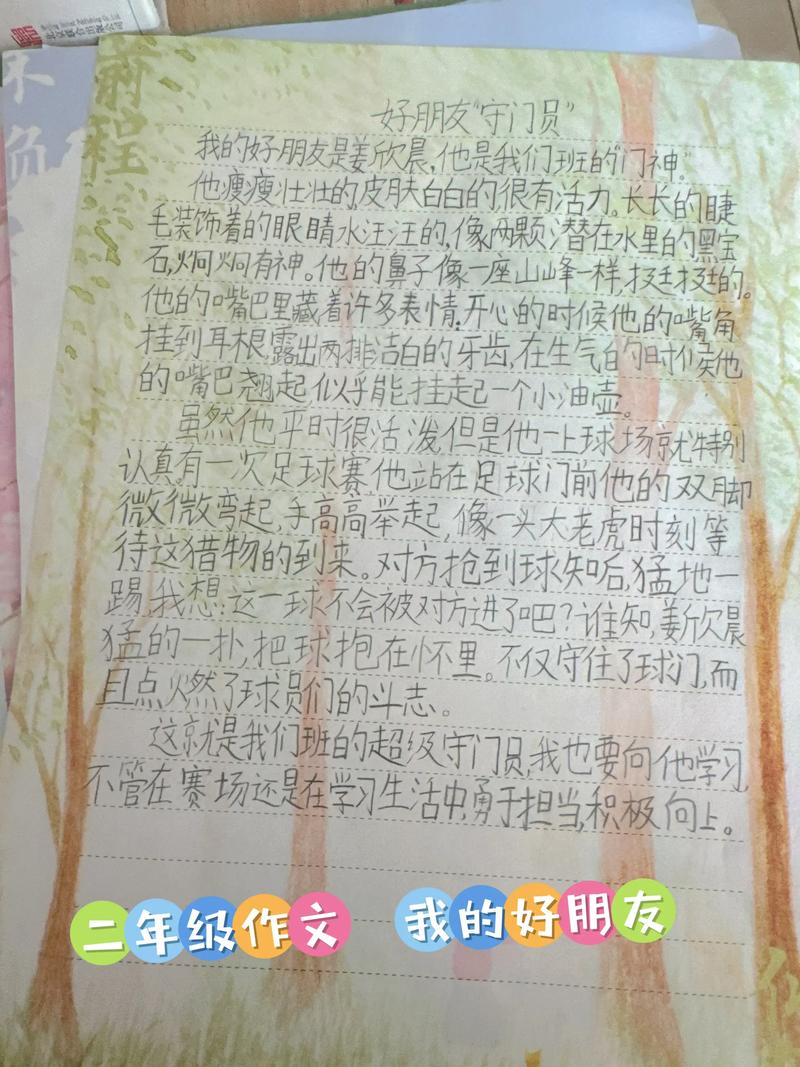 前程
不负
好朋友“守门员”
我的好朋友是姜欣晨,他是我们班的“门神”。
他瘦瘦壮壮的,皮肤白白的很有活力。长长的睫
毛装饰着的眼睛水汪汪的,像两颗潜在水里的黑宝
石,炯炯有神。他的鼻子像一座山峰一样,挺挺的。
他的嘴巴里藏着许多表情:开心的时候他的嘴角
挂到耳根,露出两排洁白的牙齿,在生气的时候他
的嘴巴翘起,似乎能挂起一个小油壶。
虽然他平时很活泼,但是他一上球场就特别
认真,有一次足球赛,他站在足球门前他的双脚
微微弯起,手高高举起,像一头大老虎时刻等
待这猎物的到来。对方抢到球知后,猛地一
踢,我想:这一球不会被对方进了吧?谁知,姜欣晨
猛的一扑,把球抱在怀里。不仅守住了球门,而
且点火然了球员们的斗志。
这就是我们班的超级守门员,我也要向他学习,
不管在赛场还是在学习生活中,勇于担当,积极向上。
二年级作文 我的好朋友